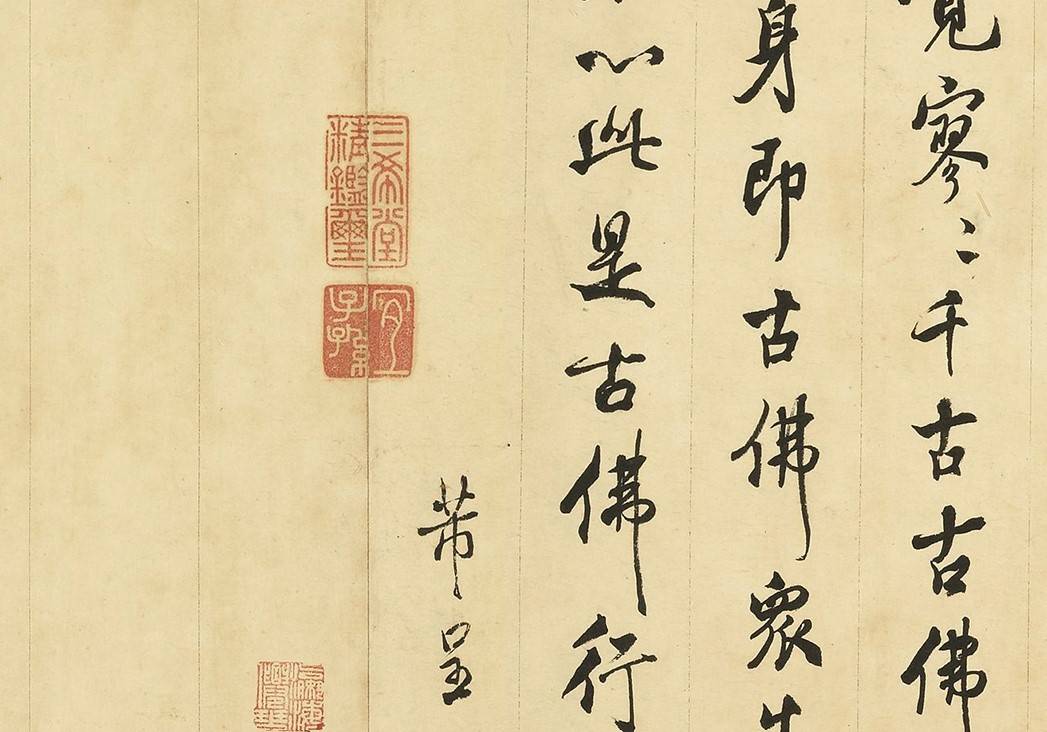 覓寥〻千古古佛
身即古佛衆生
心此是古佛行
芾呈
三希堂精鑑璽
宜子孫